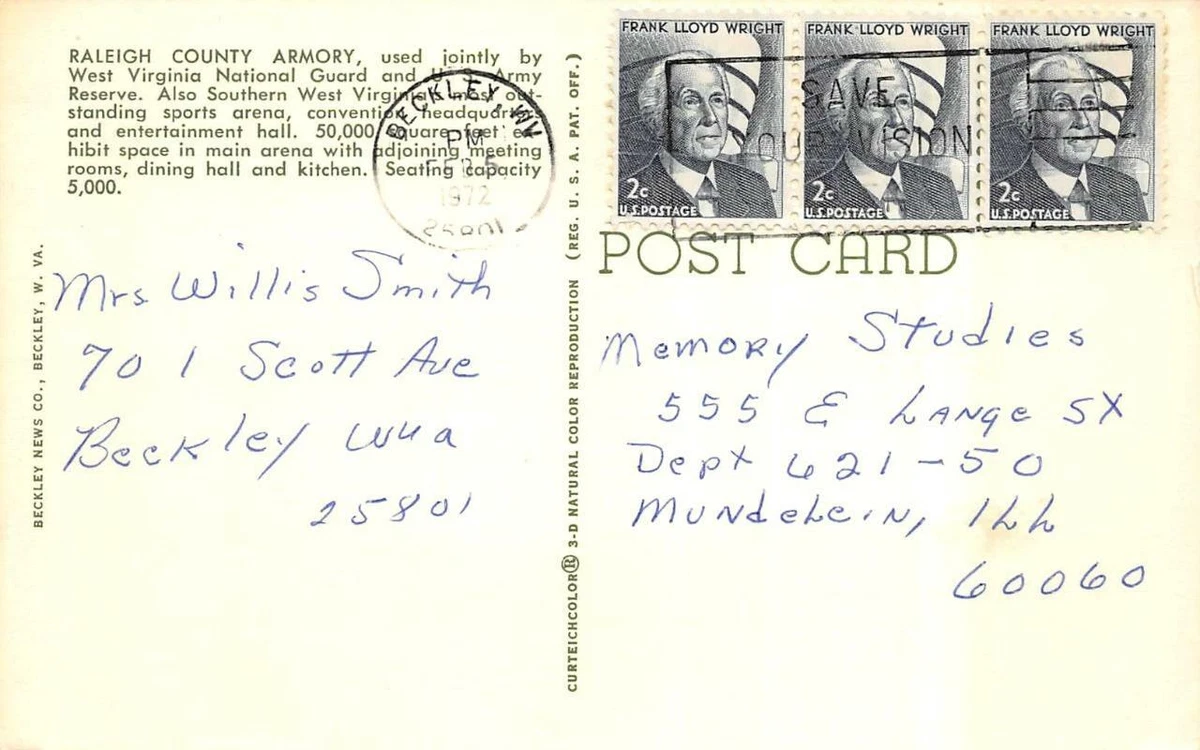 RALEIGH COUNTY ARMORY, used jointly by
West Virginia National Guard and U. S. Army
Reserve. Also Southern West Virginia's most out-
standing sports arena, convention headquarters
and entertainment hall. 50,000 square feet ex-
hibit space in main arena with adjoining meeting
rooms, dining hall and kitchen. Seating capacity
5,000.
BECKLEY, WV
PM
FEB 5
1972
25801
BECKLEY NEWS CO., BECKLEY, W. VA.
Mrs Willis Smith
701 Scott Ave
Beckley
25801
CURTEICHCOLOR® 3-D NATURAL COLOR REPRODUCTION (REG. U. S. A. PAT. OFF.)
FRANK LLOYD WRIGHT
2c
U.S.POSTAGE
FRANK LLOYD WRIGHT
2c
U.S.POSTAGE
FRANK LLOYD WRIGHT
2c
U.S.POSTAGE
SAVE
YOUR VISION
POST CARD
Memory Studies
555 E Lange St
Dept 621-50
Mundelein, Ill
60060